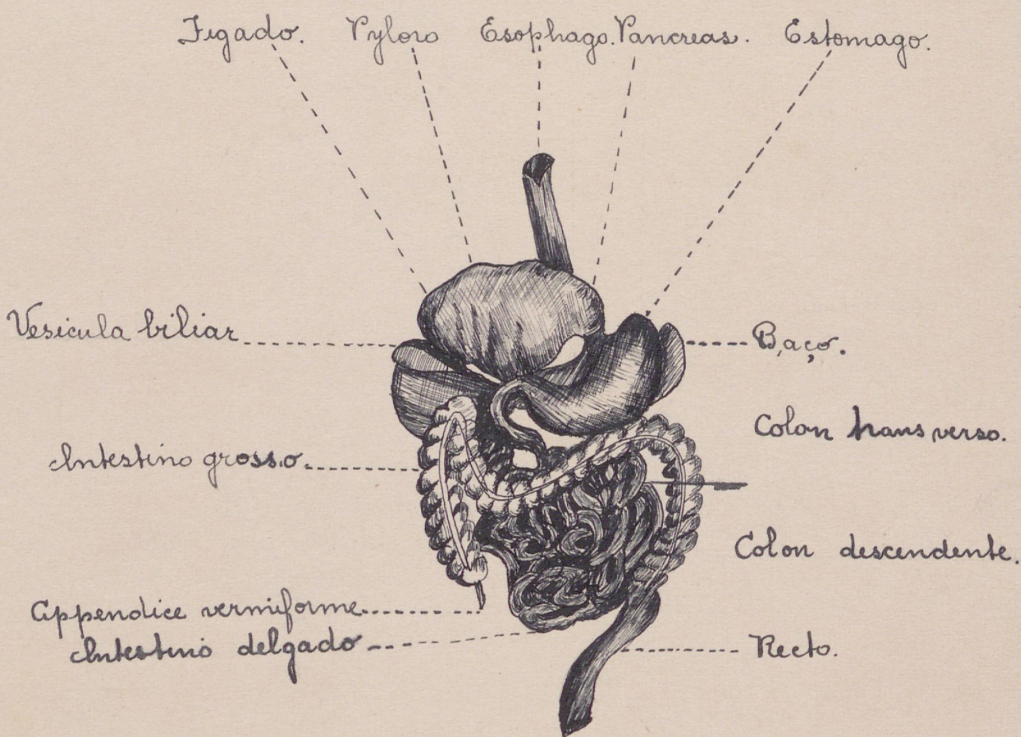 Figado. Pyloro Esophago. Pancreas. Estomago.
Vesicula biliar
Baço.
Colon transverso.
Intestino grosso
Colon descendente.
Appendice vermiforme
Intestino delgado
Recto.